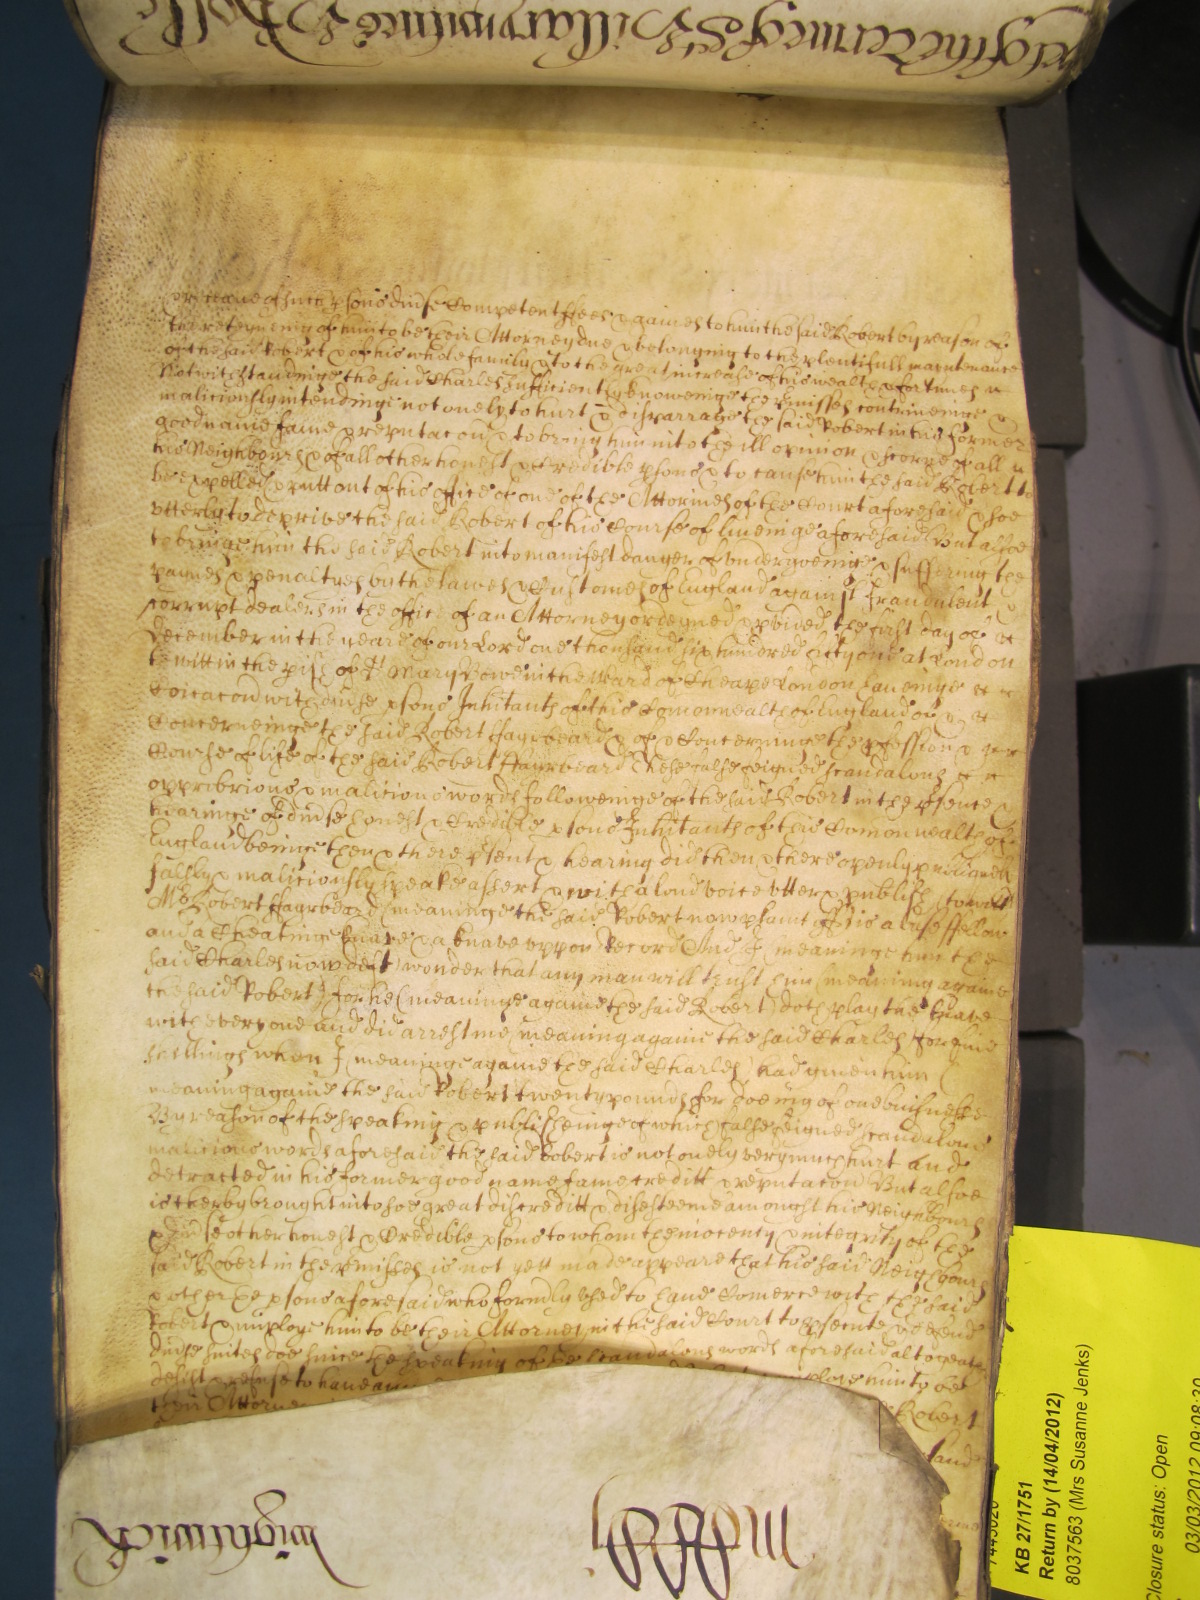 of the Terme of St Hillary in the Rolle
or reteyneinge of such psons divse Competent ffees & gaines to him the said Robert by reason of
the reteyneing of him to be their Attorney due & belonging to the plentifull maintenance
of the said Robert & of his whole family & to the great increase of his wealth & fortunes
Notwithstandinge the said Charles sufficiently knoweinge the pmisses contriveinge &
maliciously intendinge not onely to hurt & disparrage the said Robert in his former
good name fame & reputacon & to bring him into the ill opinion & scorne of all
his Neighbours & of all other honest & Credible psons & to cause him the said Robert to
be expelled & putt out of his office of one of the Attornies of the Court aforesaid & soe
utterly to deprive the said Robert of his Course of liveinge aforesaid But alsoe
to bringe him the said Robert into manifest danger of undergoeinge & suffering the
paynes & penaltyes by the lawes & Customes of England against fraudulent &
corrupt dealers in the office of an Attorney ordeyned & pvided the first day of
December in the yeare of our Lord one thousand six hundred fifty one at London
to witt in the pish of St Mary Bowe in the Ward of Cheape London haveinge
Coicacon with divse psons Inhitants of this Comonwealth of England of &
Concerneinge the said Robert ffayrbeard & of & Concerninge the pfession &
Course of life of the said Robert ffayrbeard These false feigned scandalous
opprobrious & malicious words followeinge of the said Robert in the psence &
hearinge of divse honest & Credible psons Inhitants of this Comonwealth of
England beinge then & there psent & hearing did then & there openly publiquely
falsly & maliciously speake assert & with a loud voice utter & publish (to witt)
Mr Robert ffayrbeard (meaninge the said Robert now plaint) is a base fellow
and a Cheatinge knave & a knave uppon Record And I (meaninge him the
said Charles now deft) wonder that any man will trust him (meaning againe
the said Robert) for he (meaninge againe the said Robert) doth play the knave
with every one and did arrest me (meaning againe the said Charles) for five
shillings when I (meaninge againe the said Charles) had given him (
meaning againe the said Robert) twenty pounds for doeing of one buisnesse
By reason of the speaking & publisheinge of which false feigned scandalous
malicious words aforesaid the said Robert is not onely very much hurt and
detracted in his former good name fame creditt & reputacon But alsoe
is therby brought into soe great discreditt & disesteeme amongst his Neighbours
& divse other honest & Credible psons to whom the inocency & integrity of the
said Robert in the pmisses is not yett made appeare that his said Neighbours
& other the psons aforesaid who formerly used to have Comerce with the said
Robert & imploye him to be their Attorney in the said Court to psecute & defend
divse suites doe since the speaking of the scandalous words aforesaid altogeather
desist & refuse to have any imploye him to be
their Attorney Robert
and
Wightwick
KB 27/1751
Return by (14/04/2012)
8037563 (Mrs Susanne Jenks)
Closure status: Open
03/03/2012 09:08:30